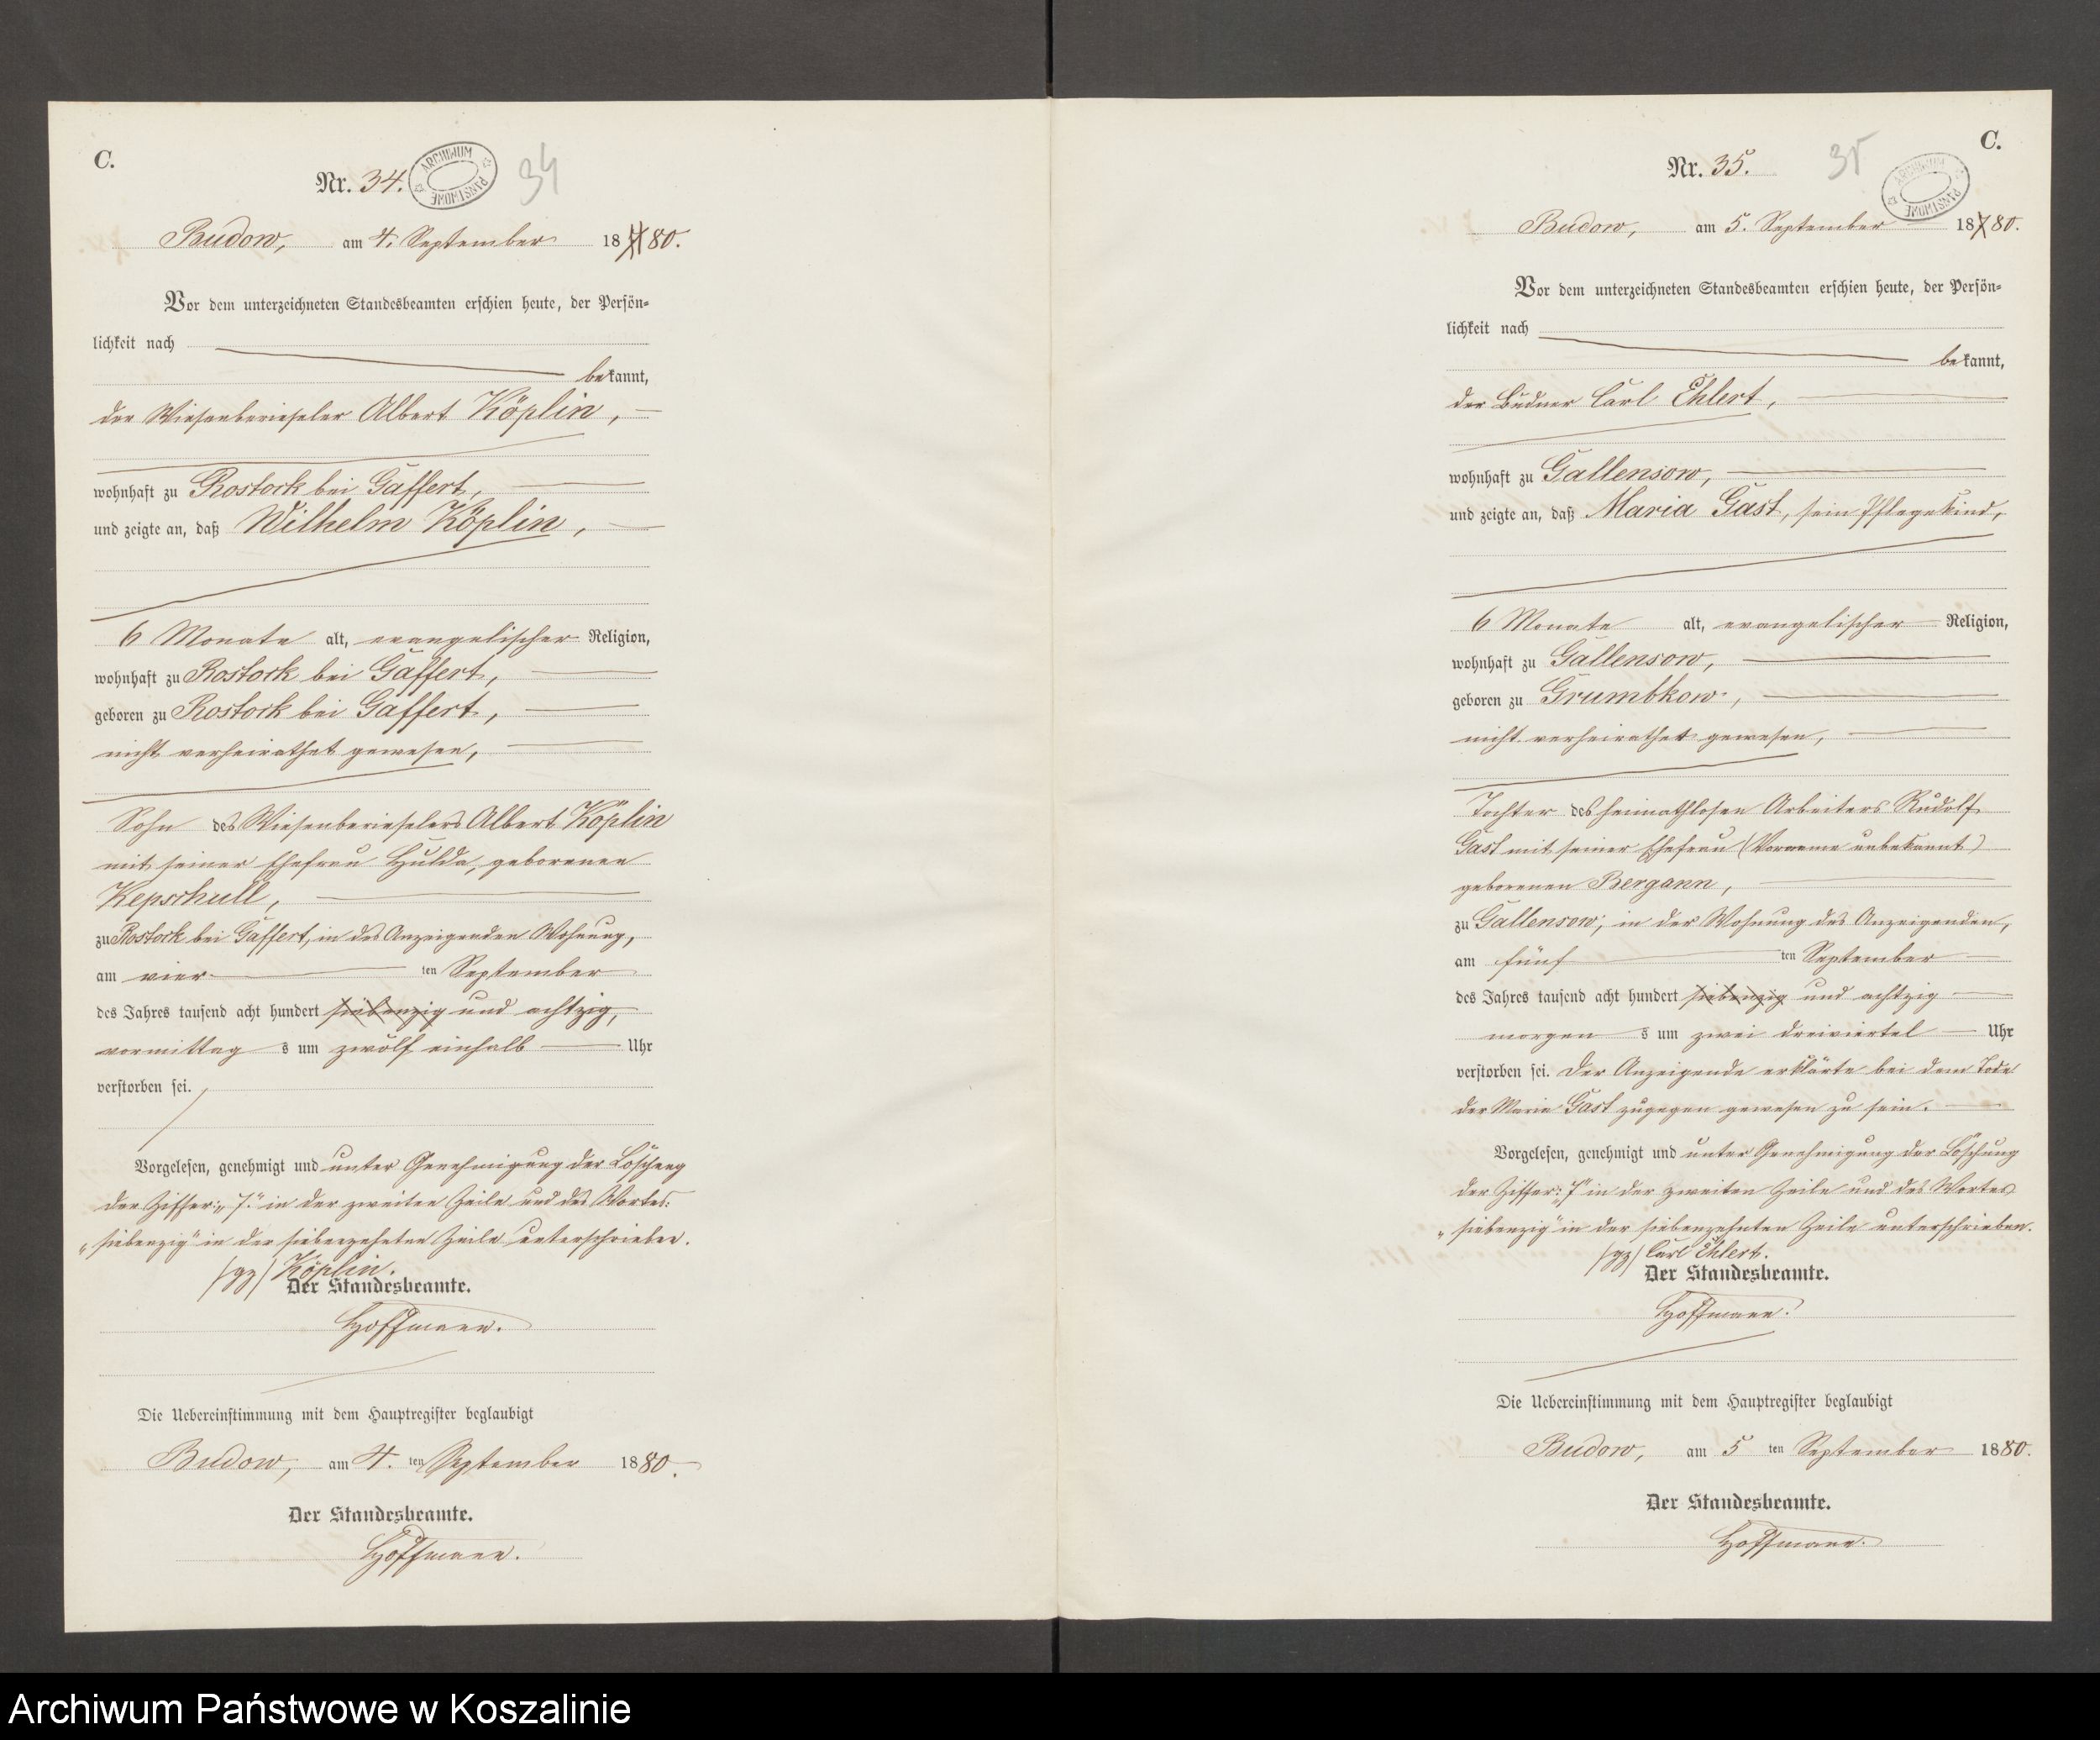 C.
Nr. 34.
ARCHIWUM PAŃSTWOWE
34
Budow, am 4. September 18780.
Vor dem unterzeichneten Standesbeamten erschien heute, der Persön-
lichkeit nach
bekannt,
der Wiesenberieseler Albert Köplin,
wohnhaft zu Rostock bei Gaffert,
und zeigte an, daß Wilhelm Köplin,
6 Monate alt, evangelischer Religion,
wohnhaft zu Rostock bei Gaffert,
geboren zu Rostock bei Gaffert,
nicht verheirathet gewesen,
Sohn des Wiesenberieselers Albert Köplin
mit seiner Ehefrau Hulda, geborenen
Kepschull,
zu Rostock bei Gaffert, in des Anzeigenden Wohnung,
am vier ten September
des Jahres tausend acht hundert siebenzig und achtzig,
vormittag s um zwölf einhalb Uhr
verstorben sei.
Vorgelesen, genehmigt und unter Genehmigung der Löschung
der Ziffer: „7." in der zweiten Zeile und des Wortes:
„siebenzig" in der siebenzehnten Zeile unterschrieben.
/gz/ Köplin.
Der Standesbeamte.
Hoffmann.
Die Uebereinstimmung mit dem Hauptregister beglaubigt
Budow, am 4. ten September 1880.
Der Standesbeamte.
Hoffmann.
C.
Nr. 35.
35
ARCHIWUM PAŃSTWOWE
Budow, am 5. September 18780.
Vor dem unterzeichneten Standesbeamten erschien heute, der Persön-
lichkeit nach
bekannt,
der Büdner Carl Ehlert,
wohnhaft zu Gallensow,
und zeigte an, daß Maria Gast, sein Pflegekind,
6 Monate alt, evangelischer Religion,
wohnhaft zu Gallensow,
geboren zu Grumbkow,
nicht verheirathet gewesen,
Tochter des heimathlosen Arbeiters Rudolf
Gast mit seiner Ehefrau (Vorname unbekannt)
geborenen Bergann,
zu Gallensow, in der Wohnung des Anzeigenden,
am fünf ten September
des Jahres tausend acht hundert siebenzig und achtzig
morgen s um zwei dreiviertel Uhr
verstorben sei. Der Anzeigende erklärte bei dem Tode
der Maria Gast zugegen gewesen zu sein.
Vorgelesen, genehmigt und unter Genehmigung der Löschung
der Ziffer: „7" in der zweiten Zeile und des Wortes
„siebenzig" in der siebenzehnten Zeile unterschrieben.
/gz/ Carl Ehlert.
Der Standesbeamte.
Hoffmann.
Die Uebereinstimmung mit dem Hauptregister beglaubigt
Budow, am 5 ten September 1880.
Der Standesbeamte.
Hoffmann.
Archiwum Państwowe w Koszalinie